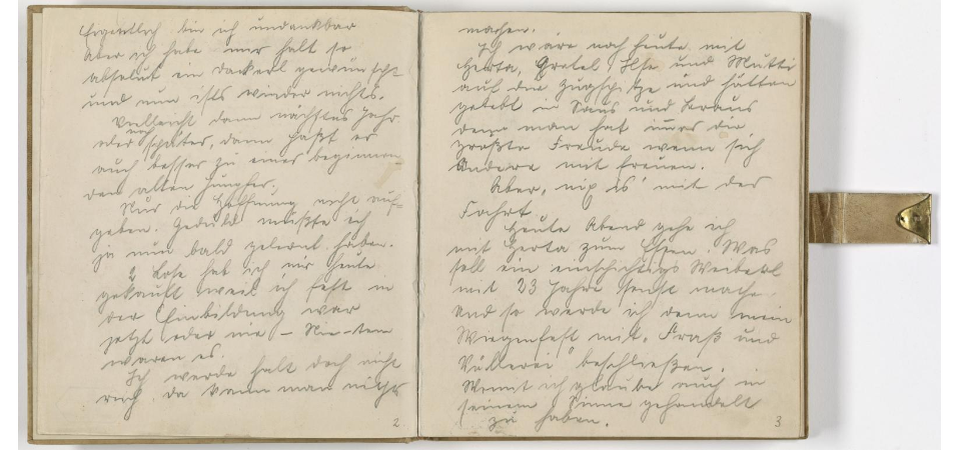 Eigentlich bin ich undankbar
Aber ich habe mir halt so
absolut ein Dackerl gewünscht
und nun ists wieder nichts.
Vielleicht dann nächstes Jahr
oder noch später, dann paßt es
auch besser zu einer beginnen-
den alten Jungfer.
Nur die Hoffnung nicht auf-
geben. Geduld müßte ich
ja nun bald gelernt haben.
2 Lose hab ich mir heute
gekauft weil ich fest in
der Einbildung war
jetzt oder nie – Nie-ten
waren es.
Ich werde halt doch nicht
reich. Da kann man nichts
2
machen.
Ich wäre noch heute mit
Herta, Gretel, Ilse und Mutti
auf die Zugspitze und hätten
gelebt in Saus und Braus
denn man hat immer die
größte Freude wenn sich
Andere mit freuen.
Aber, nix is' mit der
Fahrt.
Heute Abend gehe ich
mit Herta zum Essen. Was
soll ein einschichtigs Weiberl
mit 23 Jahre sonst mache
Und so werde ich denn mein
Wiegenfest mit „Fraß und
Völlerei" beschließen.
ich glaube auch in
seinem Sinne gehandelt
zu haben.
3